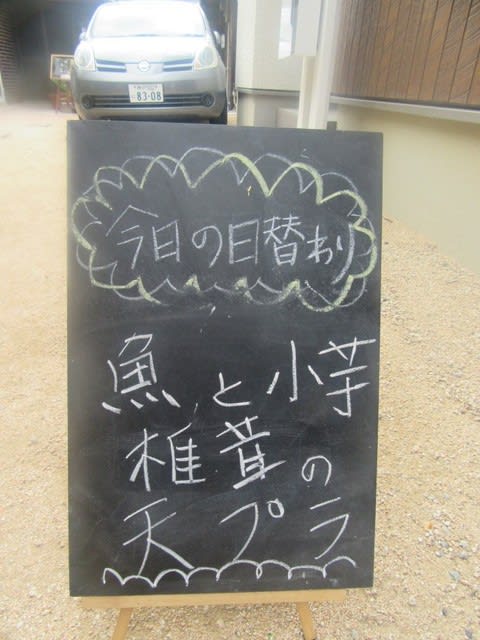 83-08
今日の日替わり
魚と小芋
椎茸の
天プラ